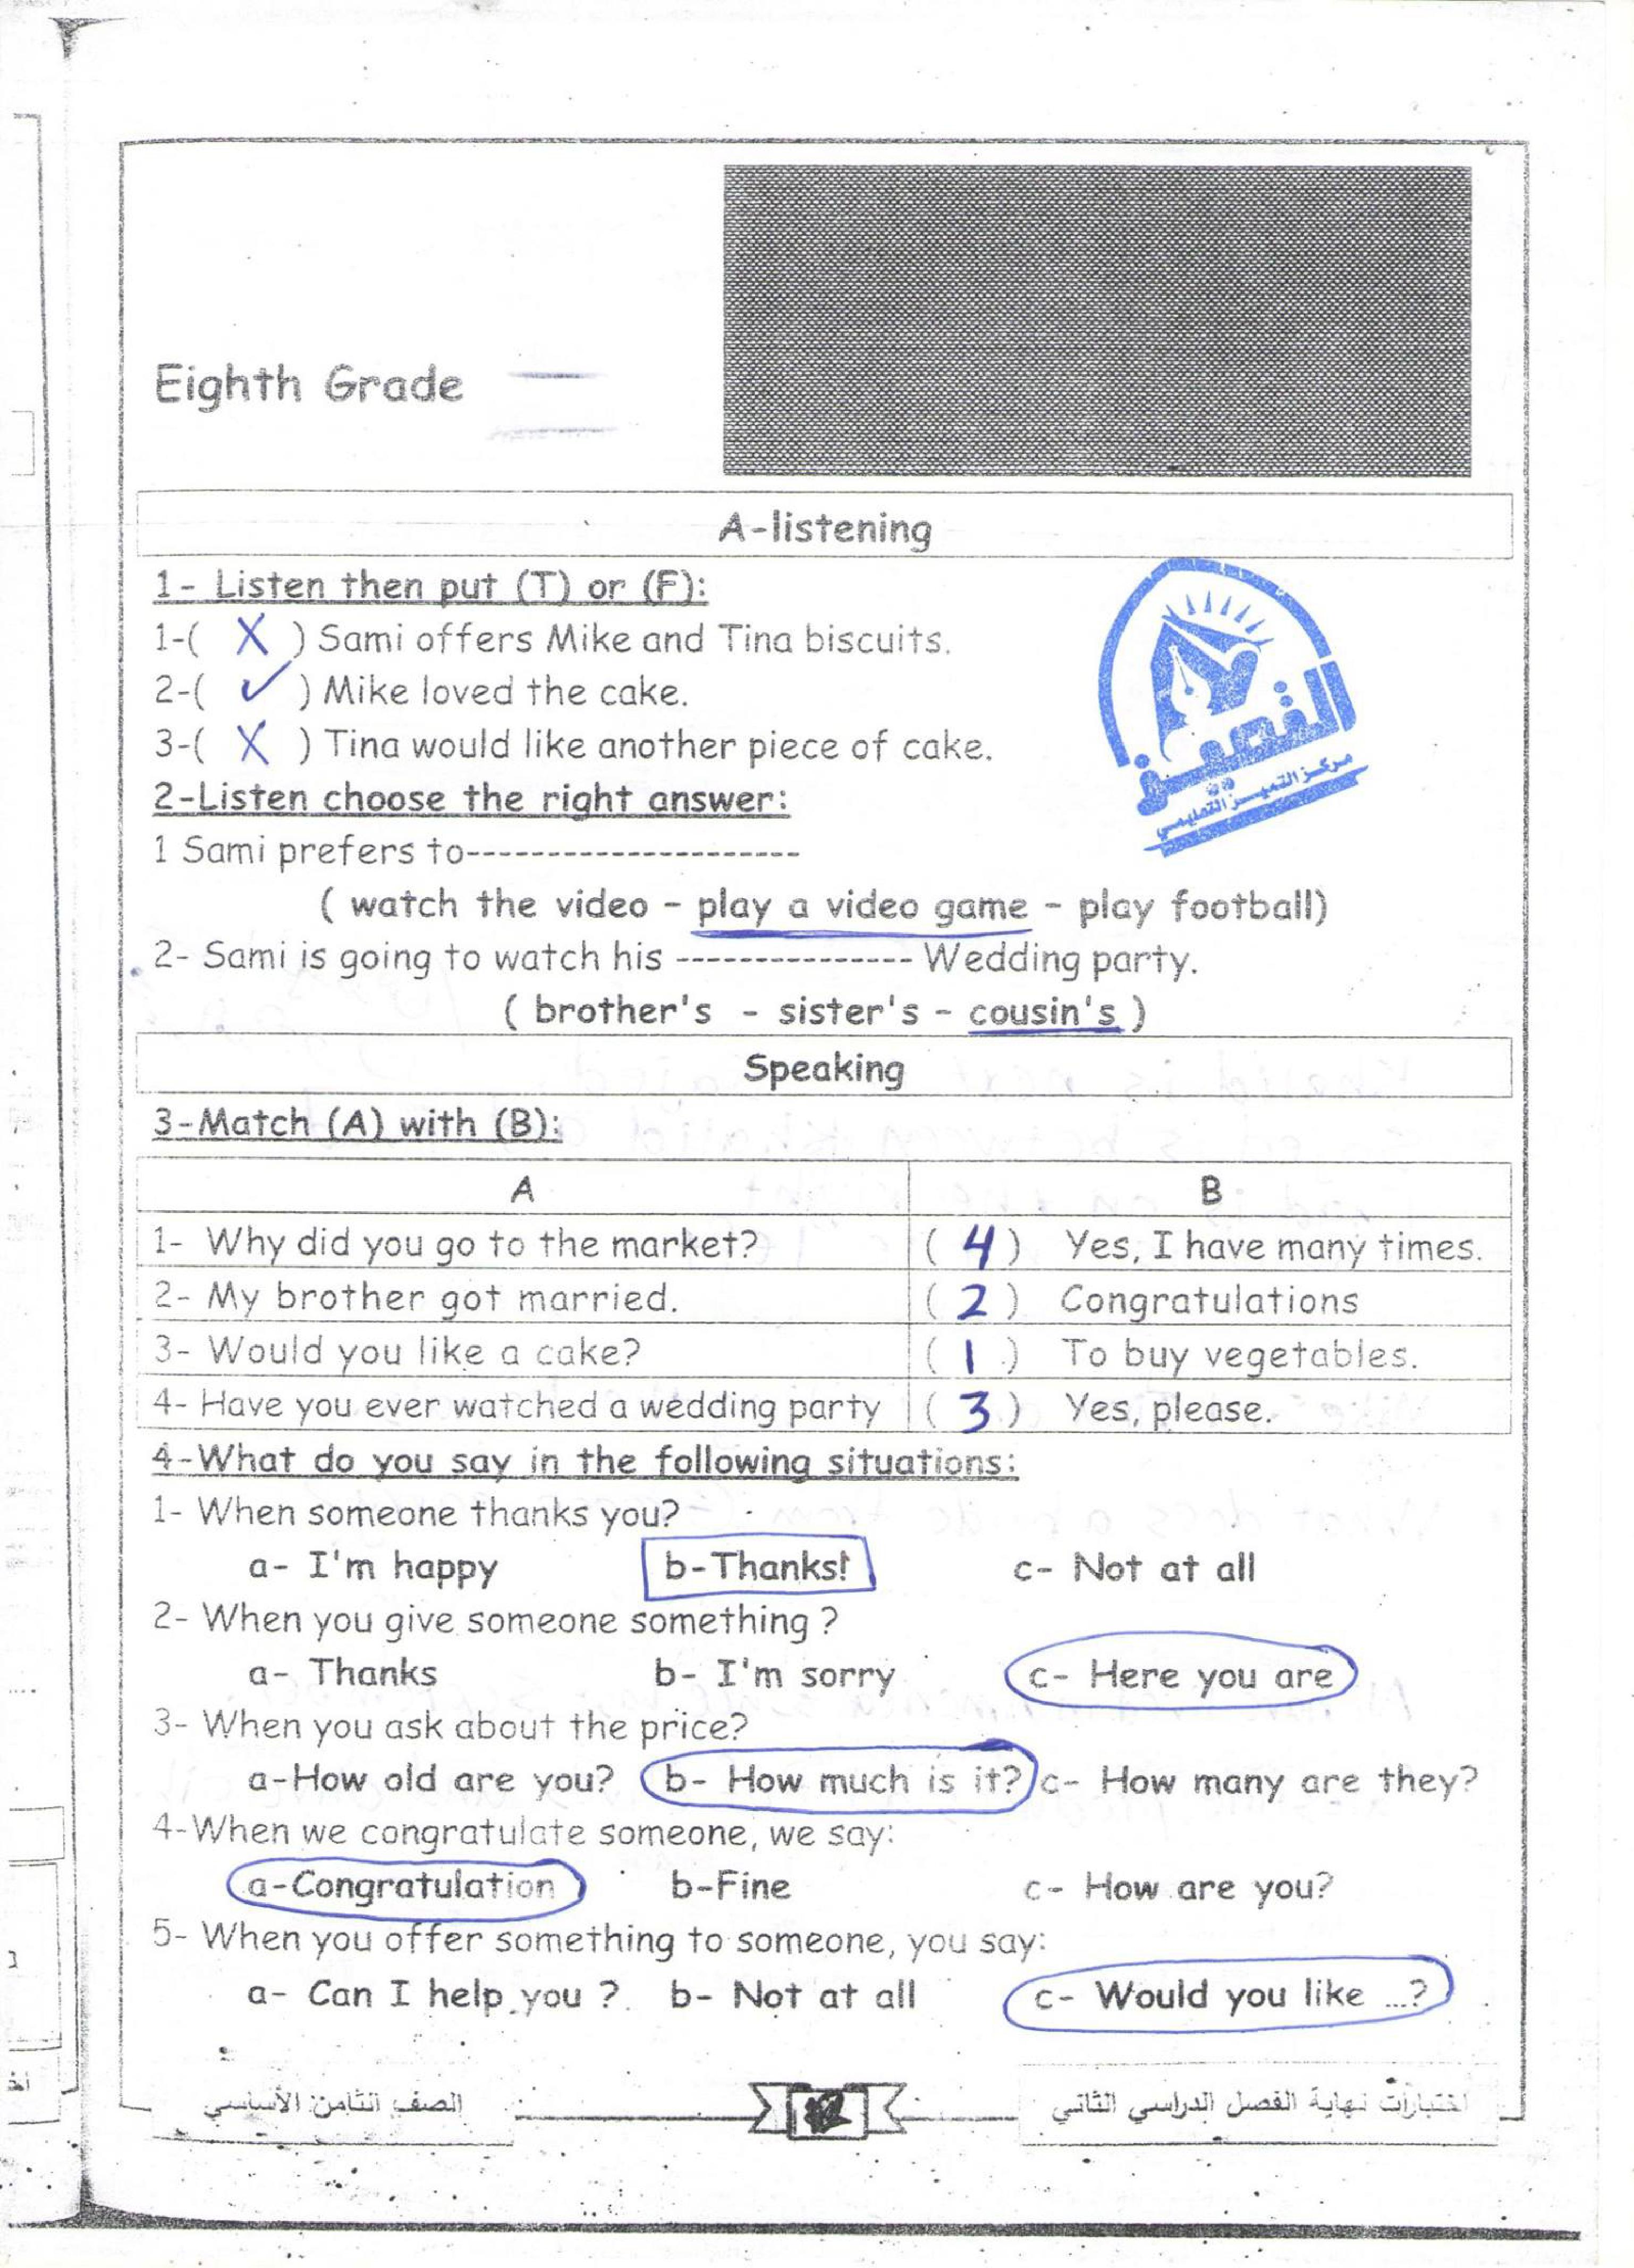 Eighth Grade
A-listening
1- Listen then put (T) or (F):
1-( X ) Sami offers Mike and Tina biscuits.
2-( ✓ ) Mike loved the cake.
3-( X ) Tina would like another piece of cake.
التميز
مركز التميز التعليمي
2-Listen choose the right answer:
1 Sami prefers to---------------------
( watch the video - play a video game - play football)
2- Sami is going to watch his --------------- Wedding party.
( brother's - sister's - cousin's )
Speaking
3-Match (A) with (B):
A B
1- Why did you go to the market? ( 4 ) Yes, I have many times.
2- My brother got married. ( 2 ) Congratulations
3- Would you like a cake? ( 1 ) To buy vegetables.
4- Have you ever watched a wedding party ( 3 ) Yes, please.
4-What do you say in the following situations:
1- When someone thanks you?
a- I'm happy b-Thanks! c- Not at all
2- When you give someone something ?
a- Thanks b- I'm sorry c- Here you are
3- When you ask about the price?
a-How old are you? b- How much is it? c- How many are they?
4-When we congratulate someone, we say:
a-Congratulation b-Fine c- How are you?
5- When you offer something to someone, you say:
a- Can I help you ? b- Not at all c- Would you like ...?
اختبارات نهاية الفصل الدراسي الثاني
الصف الثامن الأساسي